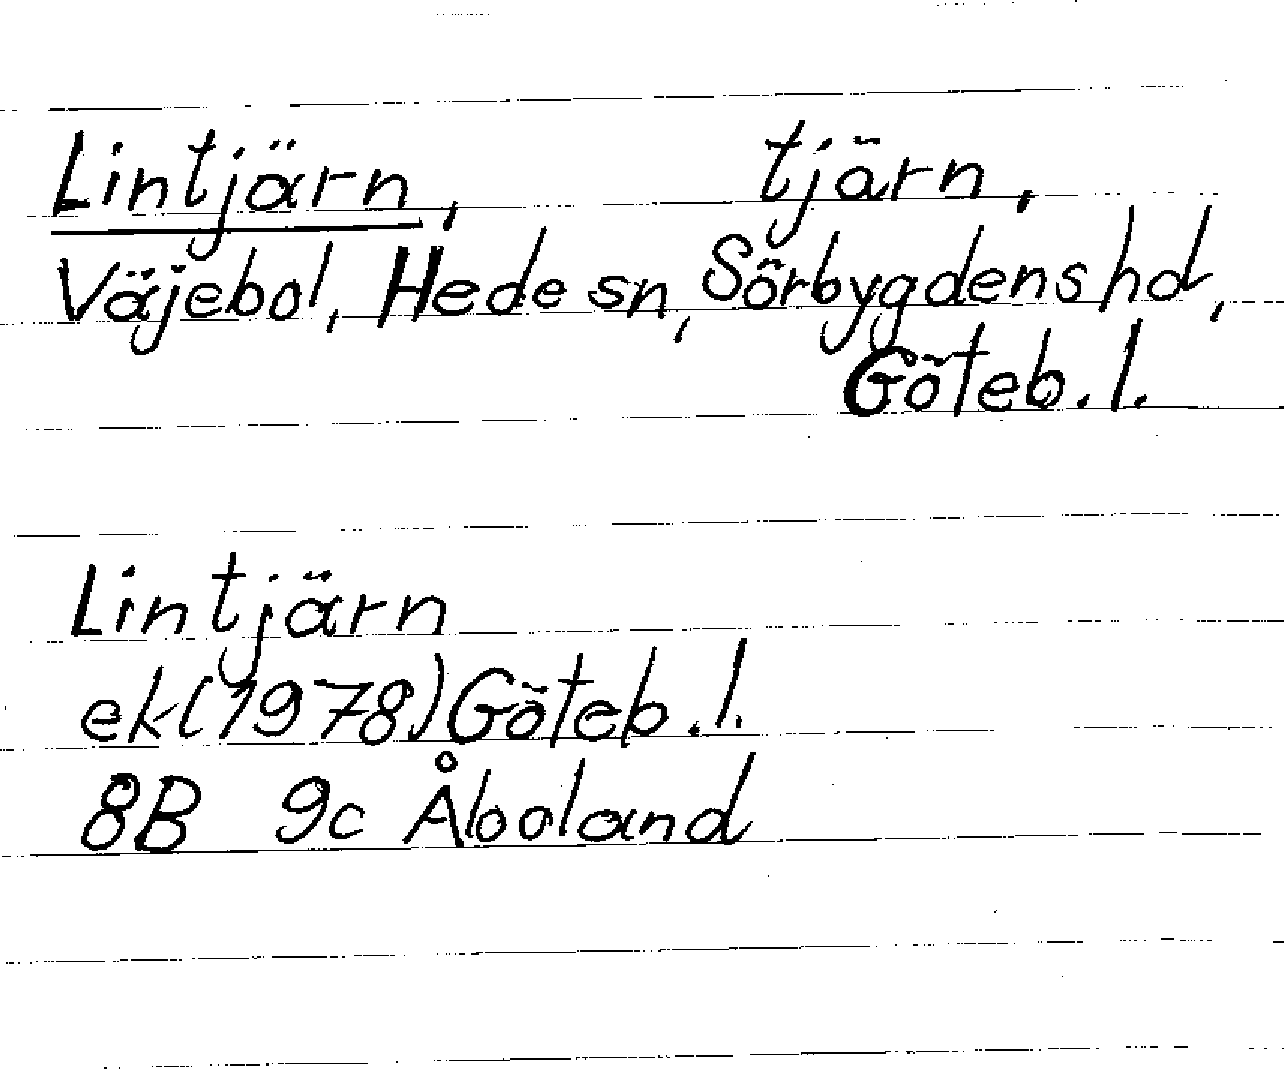 Lintjärn, tjärn,
Väjebol, Hede sn, Sörbygdens hd,
Göteb. l.
Lintjärn
ek (1978) Göteb. l.
8B 9c Åboland